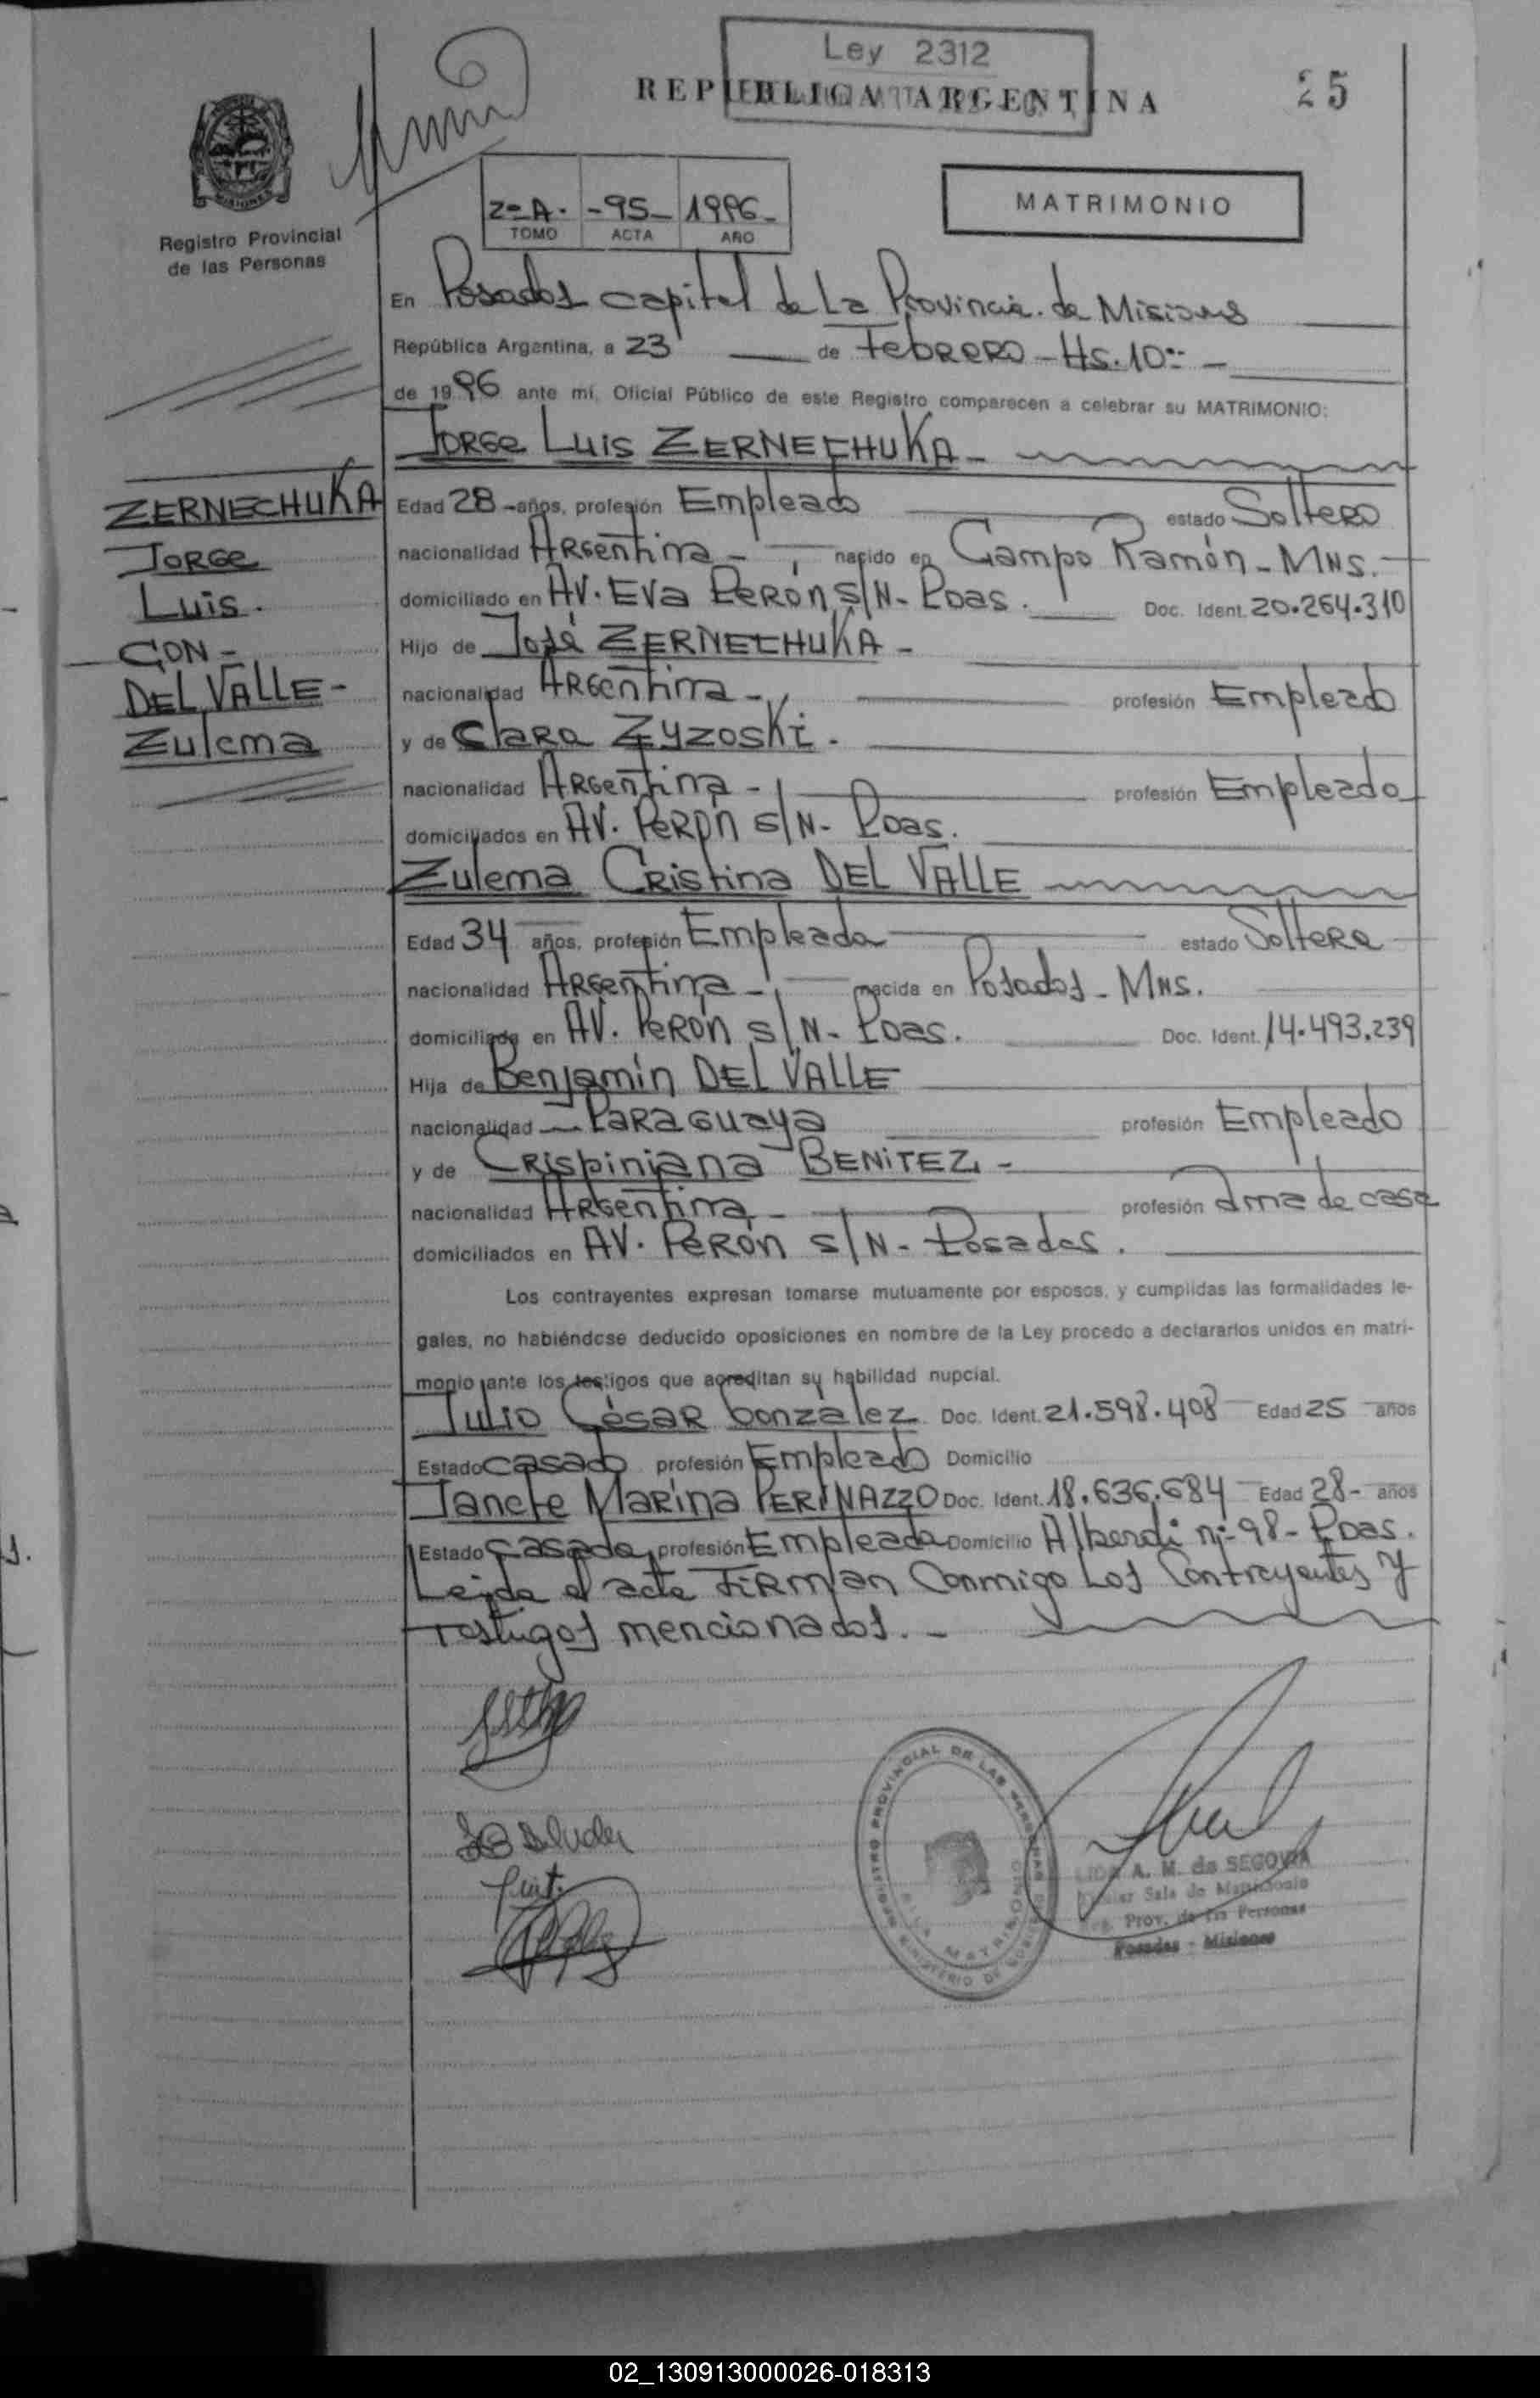 Ley 2312
REPUBLICA ARGENTINA
25
MISIONES
Registro Provincial
de las Personas
2º A. -95- 1996-
TOMO ACTA AÑO
MATRIMONIO
En Posadas capital de La Provincia de Misiones
República Argentina, a 23 de Febrero - Hs. 10:-
de 1996 ante mí, Oficial Público de este Registro comparecen a celebrar su MATRIMONIO:
Jorge Luis ZERNECHUKA -
ZERNECHUKA
Jorge
Luis.
CON -
DEL VALLE -
Zulema
Edad 28 - años, profesión Empleado estado Soltero
nacionalidad Argentina - nacido en Campo Ramón - Mns. -
domiciliado en AV. Eva Perón S/N - Pdas. Doc. Ident. 20.264.310
Hijo de José ZERNECHUKA -
nacionalidad Argentina - profesión Empleado
y de Clara Zyzoski.
nacionalidad Argentina - profesión Empleado
domiciliados en AV. Perón S/N - Pdas.
Zulema Cristina DEL VALLE
Edad 34 años, profesión Empleada estado Soltera
nacionalidad Argentina - nacida en Posadas - Mns.
domiciliada en AV. Perón S/N - Pdas. Doc. Ident. 14.493.239
Hija de Benjamín DEL VALLE
nacionalidad Paraguaya profesión Empleado
y de Crispiniana BENITEZ. -
nacionalidad Argentina - profesión ama de casa
domiciliados en AV. Perón S/N - Posadas.
Los contrayentes expresan tomarse mutuamente por esposos, y cumplidas las formalidades le-
gales, no habiéndose deducido oposiciones en nombre de la Ley procedo a declararlos unidos en matri-
monio ante los testigos que acreditan su habilidad nupcial.
Julio César González Doc. Ident. 21.598.408 Edad 25 años
Estado casado profesión Empleado Domicilio
Janete Marina PERINAZZO Doc. Ident. 18.636.684 Edad 28 - años
Estado casada profesión Empleada Domicilio Alberdi nº 98 - Pdas.
Leida el acta Firman Conmigo Los Contrayentes y
Testigos mencionados. -
REGISTRO PROVINCIAL DE LAS PERSONAS
SALA MATRIMONIO
MINISTERIO DE GOBIERNO
LIDA A. M. de SEGOVIA
Sala de Matrimonio
Reg. Prov. de las Personas
Posadas - Misiones
02_130913000026-018313